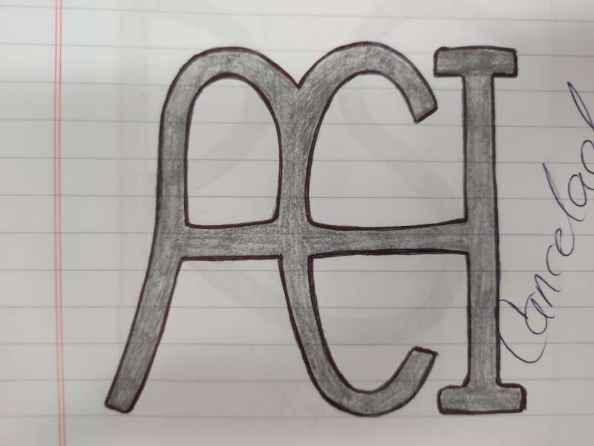 AEI
Cancelad